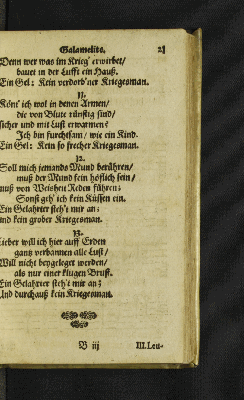 Galamelite. 21
Denn wer was im Krieg' erwirbet/
bauet in der Lufft ein Hauß.
Ein Gel: Kein verdorb'ner Kriegesman.
11.
Könt' ich wol in denen Armen/
die von Blute rünstig sind/
sicher und mit Lust erwarmen?
Ich bin furchtsam/ wie ein Kind.
Ein Gel: Kein so frecher Kriegesman.
12.
Soll mich jemands Mund berühren/
muß der Mund fein höflich sein/
muß von Weisheit Reden führen;
Sonst geh' ich kein Küssen ein.
Ein Gelahrter steh't mir an;
und kein grober Kriegesman.
13.
Lieber will ich hier auff Erden
gantz verbannen alle Lust/
Will nicht beygeleget werden/
als nur einer klugen Brust.
Ein Gelahrter steh't mir an;
Und durchauß kein Kriegesman.
B iij III. Leu-